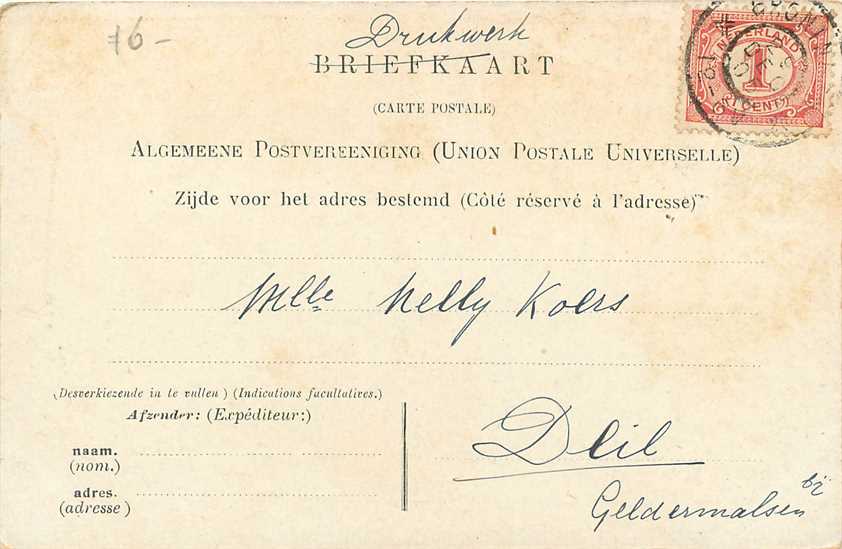 76-
Drukwerk
BRIEFKAART
(CARTE POSTALE)
ALGEMEENE POSTVEREENIGING (UNION POSTALE UNIVERSELLE)
Zijde voor het adres bestemd (Côté réservé à l'adresse)
NEDERLAND
1
CENT
Mlle Nelly Koers
(Desverkiezende in te vullen) (Indications facultatives.)
Afzender: (Expéditeur:)
naam.
(nom.)
adres.
(adresse)
Deil
bij
Geldermalsen